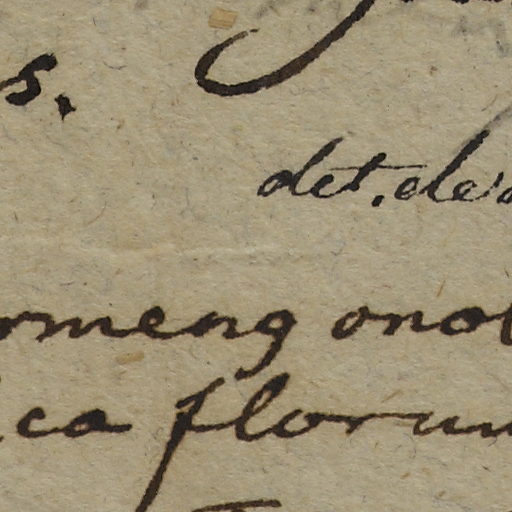 s.
det. de
rmeng onob
ca florum